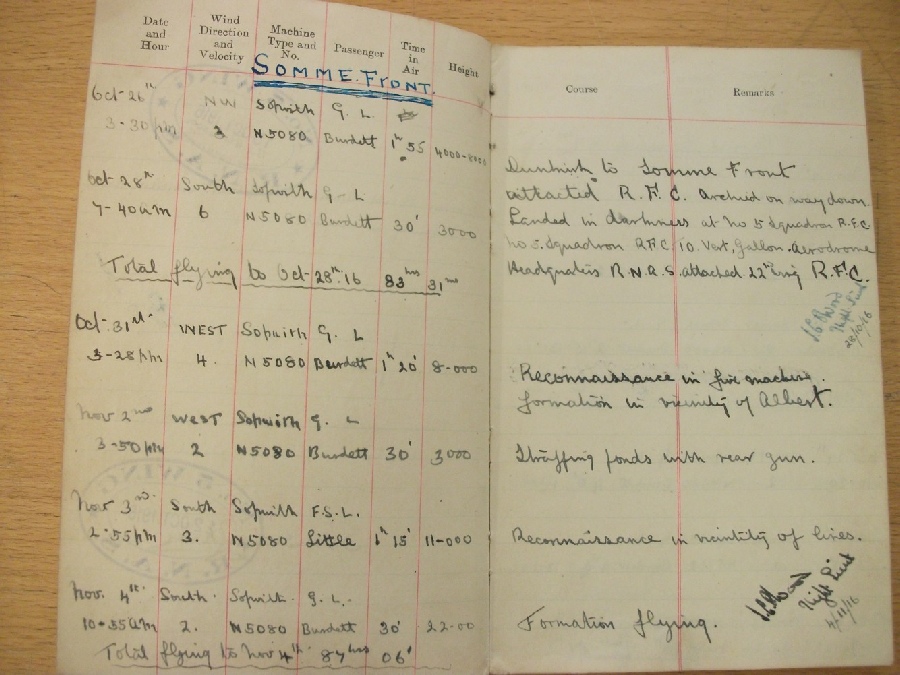 Date and Hour Wind Direction and Velocity Machine Type and No. Passenger Time in Air Height Course Remarks
SOMME FRONT.
Oct-26th NW Sopwith G. L
3-30pm 3 N5080 Burdett 1h 55 4000-8000
Dunkirk to Somme Front
attached R.F.C. Archied on way down.
Oct 28th South Sopwith G-L
7-40am 6 N5080 Burdett 30' 3000
Landed in darkness at No 5 Squadron R.F.C
No 5. Squadron RFC 10. Vert, Gallon. Aerodrome
Total flying to Oct-28th.16 83hrs 31ms
Headquarters R.N.A.S. attached 22nd wing R.F.C.
Oct. 31st. WEST Sopwith G. L
3-28pm 4. N5080 Burdett 1h 20' 8-000
Reconnaissance in five machine.
formation in vicinity of Albert.
Nov 2nd WEST Sopwith G. L
3-50pm 2 N5080 Burdett 30' 3000
Straffing ponds with rear gun.
Nov 3rd. South Sopwith F.S.L.
2-55pm 3. N5080 Little 1h 15' 11-000
Reconnaissance in vicintity of lines.
Nov. 4th. South. Sopwith. G.L.
10-35am 2. N5080 Burdett 30' 22-00
Formation flying.
Flight Lieut
4/11/16
Total flying to Nov 4th. 87hrs 06'